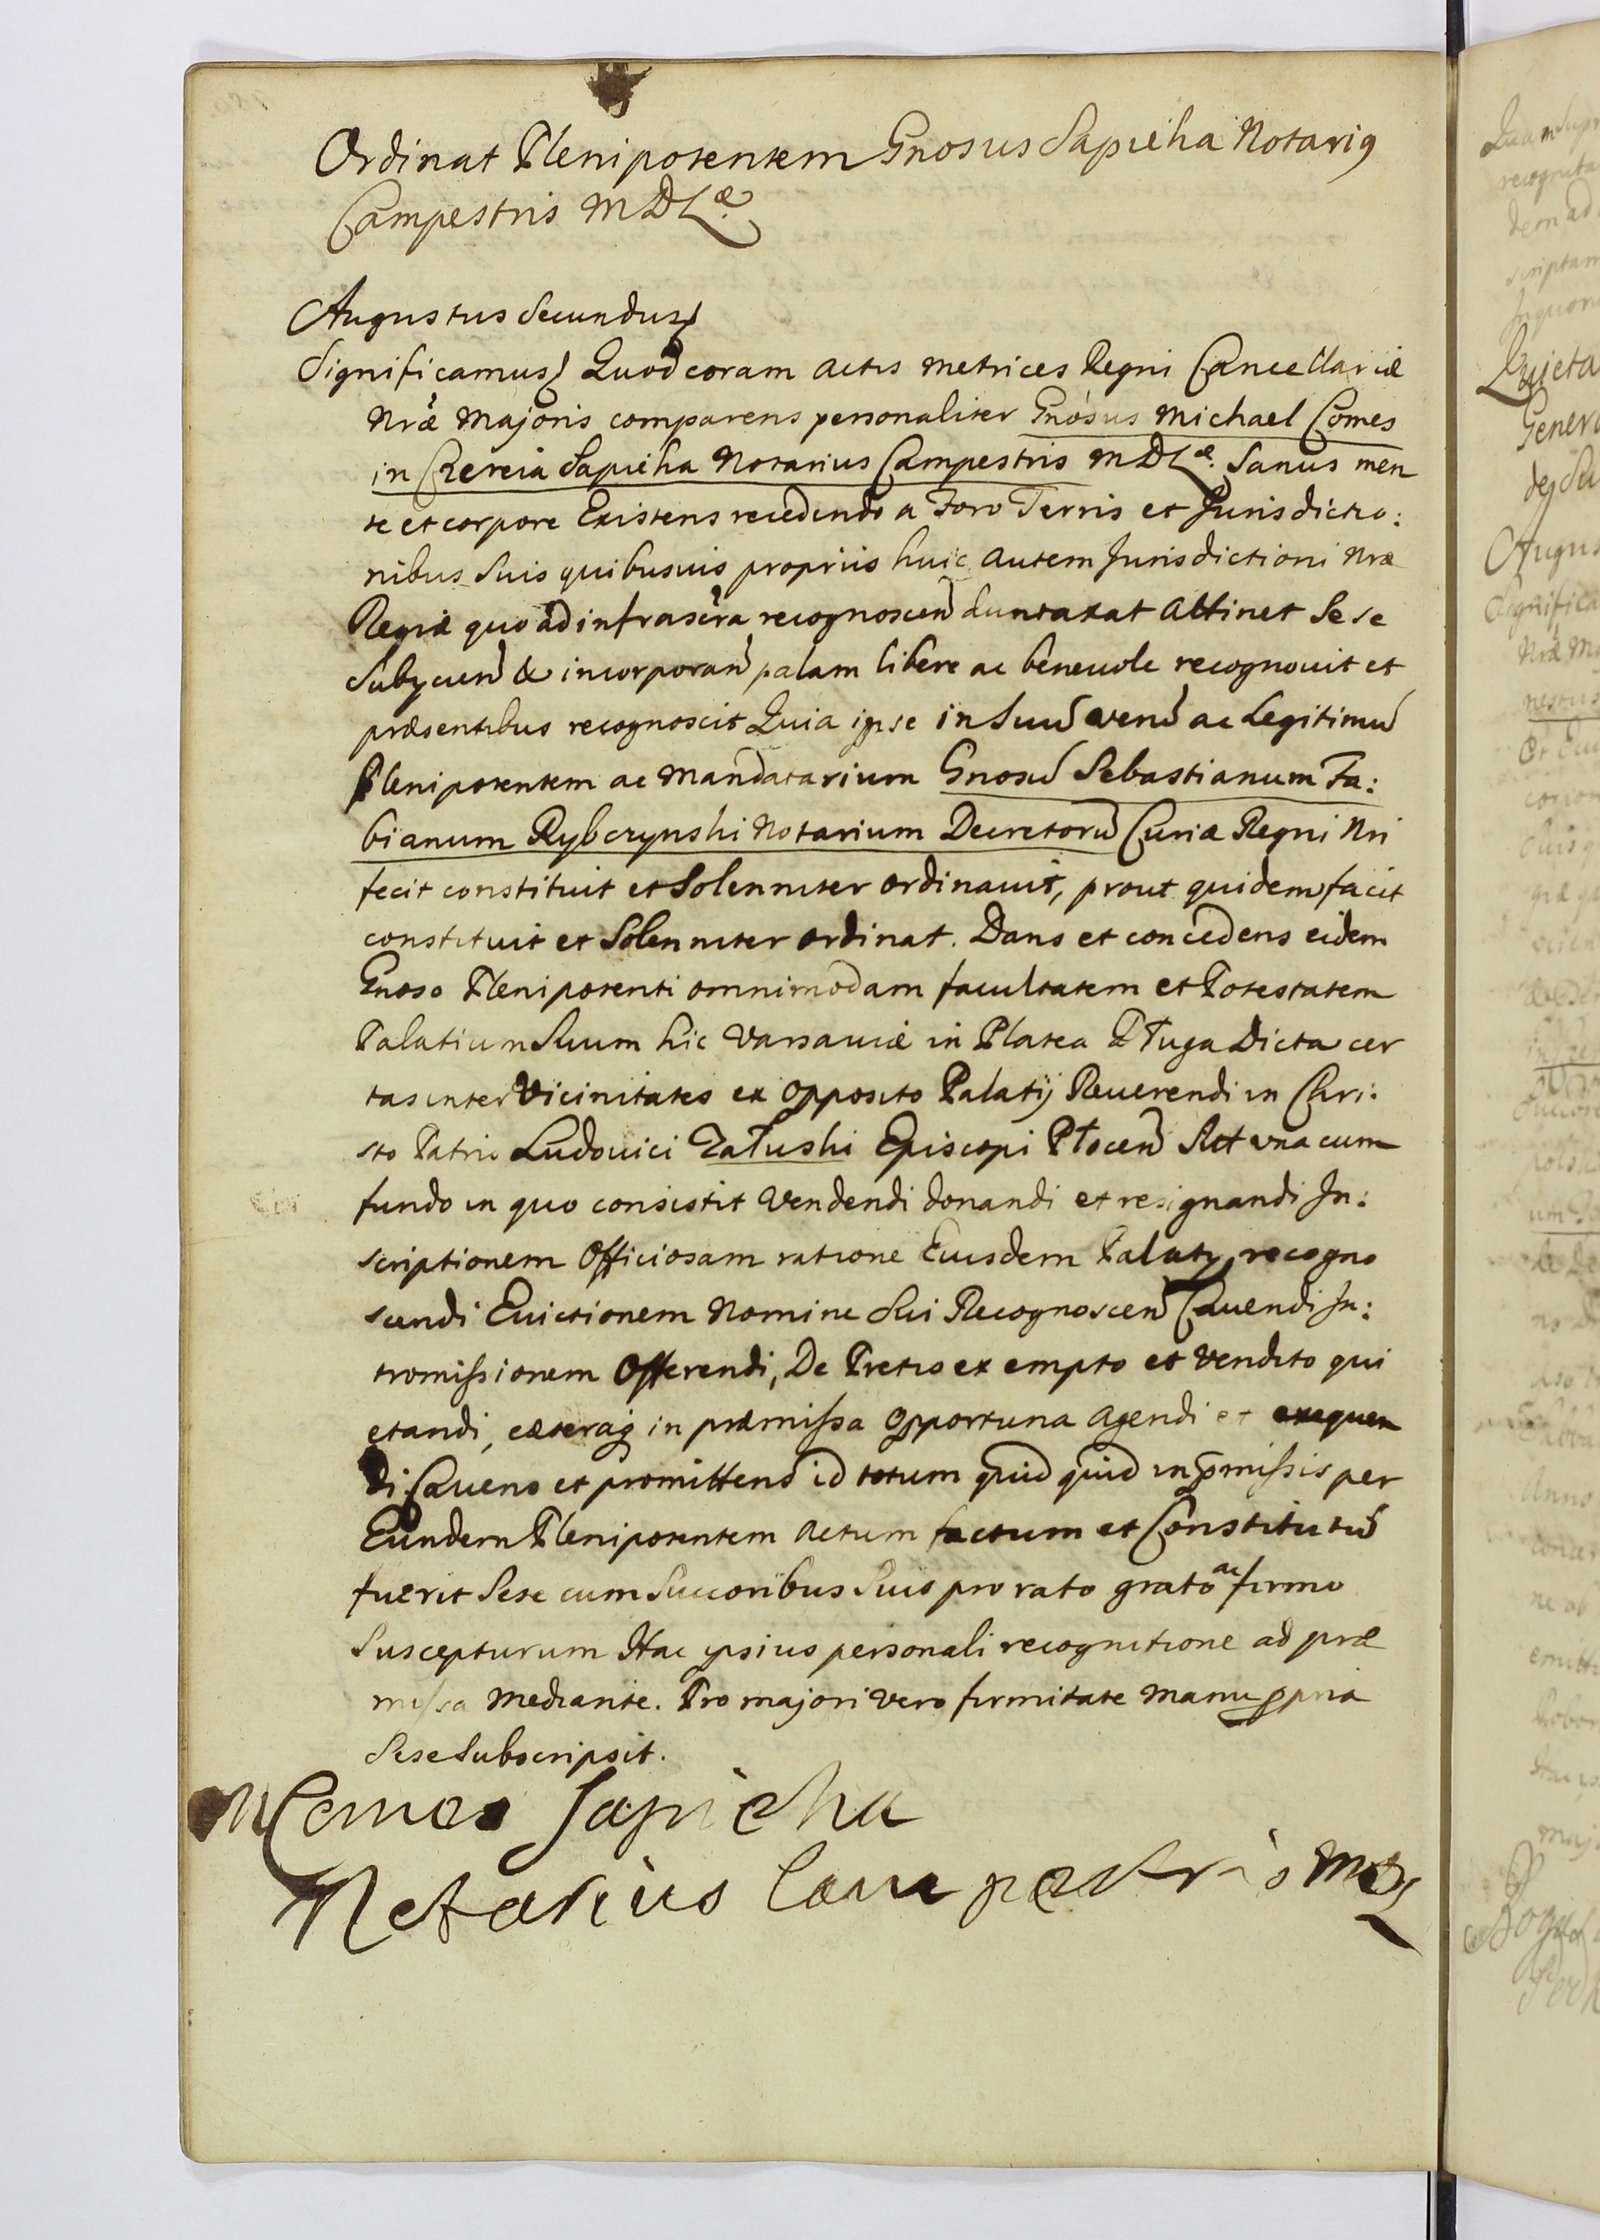 Ordinat Plenipotentem Gnosus Sapieha Notari9
Campestris MDLæ.
Augustus Secundus
Significamus Quod coram Actis Metrices Regni Cancellariæ
Nræ Majoris comparens personaliter Gnosus Michael Comes
in Czereia Sapieha Notarius Campestris MDLæ. Sanus men
te et corpore Existens recedendo a Foro Terris et Jurisdictio:
nibus Suis quibusuis propriis huic autem Jurisdictioni Nræ
Regiæ quo ad infrascra recognoscen duntaxat Attinet Sese
Subijcien & incorporan palam libere ac beneuole recognouit et
præsentibus recognoscit Quia ipse in Suu veru ac Legitimu
Plenipotentem ac Mandatarium Gnosu Sebastianum Fa:
bianum Rybczynski Notarium Decretoru Curiæ Regni Nri
fecit constituit et Solenniter ordinauit, prout quidem facit
constituit et Solenniter ordinat. Dans et concedens eidem
Gnoso Plenipotenti omnimodam facultatem et Potestatem
Palatium Suum hic Varsauiæ in Platea Długa Dicta cer
tas inter Vicinitates ex Opposito Palatij Reuerendi in Chri:
sto Patris Ludouici Załuski Episcopi Płocen Sitt una cum
fundo in quo consistit Vendendi donandi et resignandi In:
scriptionem Officiosam ratione Eiusdem Palatij recogno
scendi Euictionem Nomine Sui Recognoscen Cauendi In:
tromissionem Offerendi, De Pretio ex empto et Vendito qui
etandi, cæteraq in præmissa Opportuna Agendi et exequen
di Cauens et promittens id totum quid quid in pmissis per
Eundem Plenipotentem Actum factum et Constitutu
fuerit Sese cum Succoribus Suis pro rato grato ac firmo
Suscepturum Hac ipsius personali recognitione ad præ
missa Mediante. Pro majori vero firmitate Manu ppria
Sese Subscripsit.
M Comes Sapieha
Notarius Campestris MDL